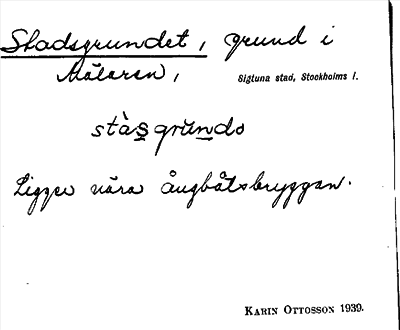 Stadsgrundet, grund i
Mälaren, Sigtuna stad, Stockholms l.
stàs̲grùn̲də
Ligger nära ångbåtsbryggan.
KARIN OTTOSSON 1939.